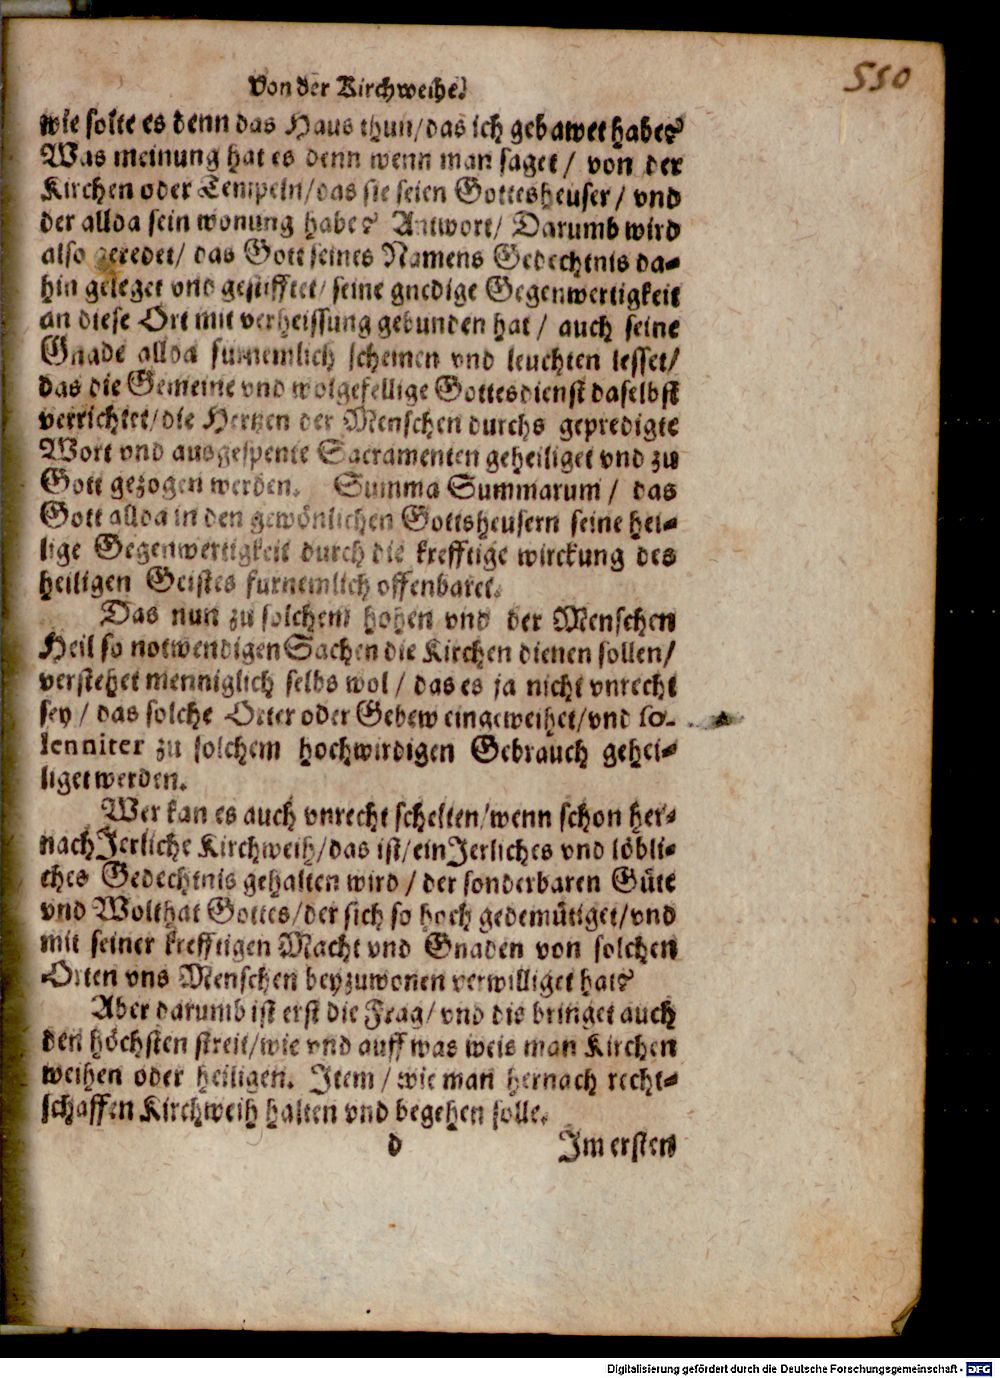 550
Von der Kirchweihe.
wie solte es denn das Haus thun/das ich gebawet habe?
Was meinung hat es denn wenn man saget / von der
Kirchen oder Tempeln/das sie seien Gottesheuser / vnd
der allda sein wonung habe? Antwort/ Darumb wird
also geredet/ das Gott seines Namens Gedechtnis da-
hin geleget vnd gestifftet/ seine gnedige Gegenwertigkeit
an diese Ort mit verheissung gebunden hat / auch seine
Gnade allda furnemlich scheinen vnd leuchten lesset/
das die Gemeine vnd wolgefellige Gottesdienst daselbst
verrichtet/die Hertzen der Menschen durchs gepredigte
Wort vnd ausgespente Sacramenten geheiliget vnd zu
Gott gezogen werden. Summa Summarum / das
Gott allda in den gewönlichen Gottsheusern seine hei-
lige Gegenwertigkeit durch die krefftige wirckung des
heiligen Geistes furnemlich offenbaret.
Das nun zu solchem hohen vnd der Menschen
Heil so notwendigen Sachen die Kirchen dienen sollen/
verstehet menniglich selbs wol / das es ja nicht vnrecht
sey / das solche Orter oder Gebew eingeweihet/vnd so-
lenniter zu solchem hochwirdigen Gebrauch gehei-
liget werden.
Wer kan es auch vnrecht schelten/wenn schon her-
nach Jerliche Kirchweih/das ist/ein Jerliches vnd löbli-
ches Gedechtnis gehalten wird / der sonderbaren Güte
vnd Wolthat Gottes/der sich so hoch gedemütiget/vnd
mit seiner krefftigen Macht vnd Gnaden von solchen
Orten vns Menschen beyzuwonen verwilliget hat?
Aber darumb ist erst die Frag/ vnd die bringet auch
den höchsten streit/wie vnd auff was weis man Kirchen
weihen oder heiligen. Item / wie man hernach recht-
schaffen Kirchweih halten vnd begehen solle.
d Im ersten
Digitalisierung gefördert durch die Deutsche Forschungsgemeinschaft - DFG